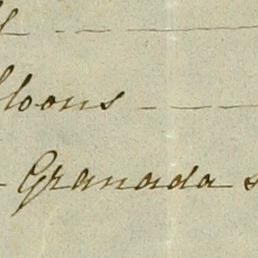 lloons - -
- Granada s